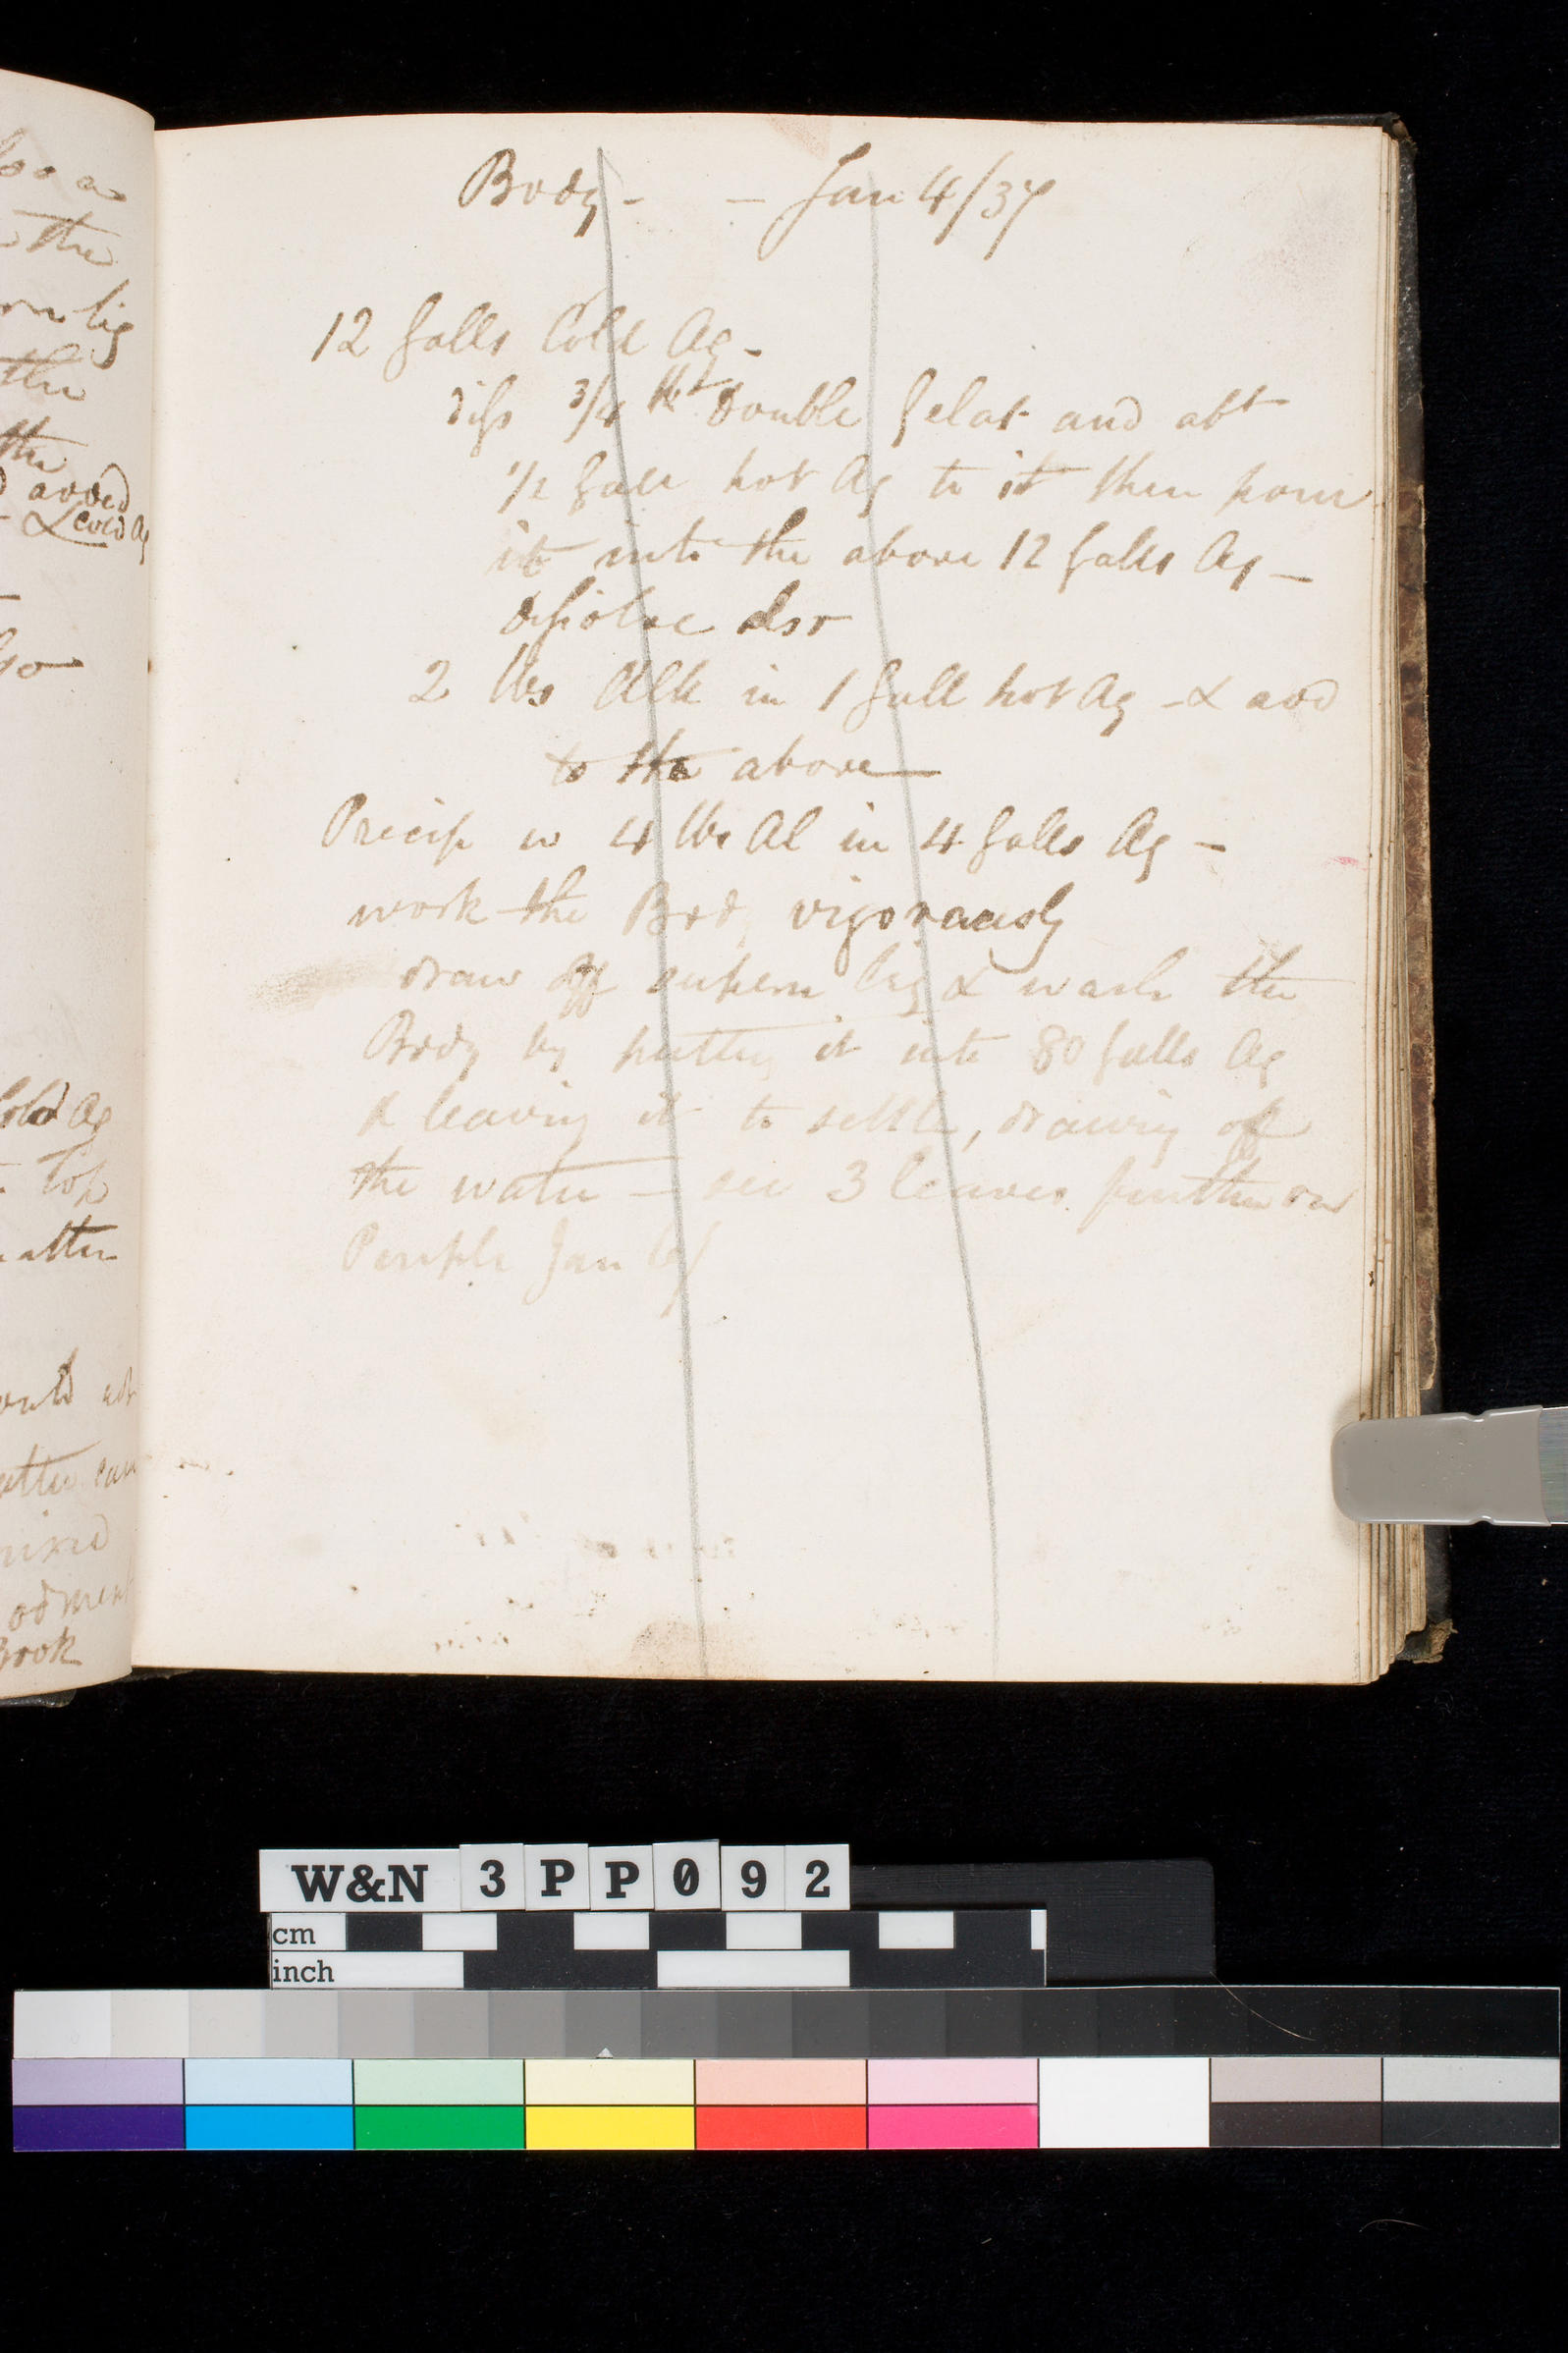 Body - - Jan 4/37
12 Galls Cold Aq -
diss 3/4 lb double Gelat and abt
1/2 Gall hot Aq to it then pour
it into the above 12 Galls Aq -
dissolve also
2 lbs Alk in 1 Gall hot Aq - & add
to the above
Precip w 4 lbs Al in 4 Galls Aq -
work the Body vigorously
draw off supern liq & wash the
Body by putting it into 80 Galls Aq
& leaving it to settle, drawing off
the water - see 3 leaves further on
Purple Jan
the
the
the
added
& Cold Aq
Cold Aq
top
Book
W&N 3PP092
cm
inch